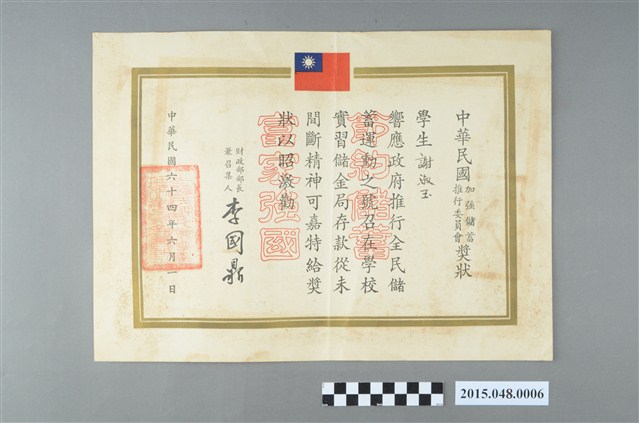 中華民國加強儲蓄推行委員會獎狀
學生謝淑玉
響應政府推行全民儲
蓄運動之號召在學校
實習儲金局存款從未
間斷精神可嘉特給獎
狀以昭激勸
財政部部長
兼召集人
李國鼎
中華民國六十四年六月一日
節約儲蓄
富家強國
2015.048.0006